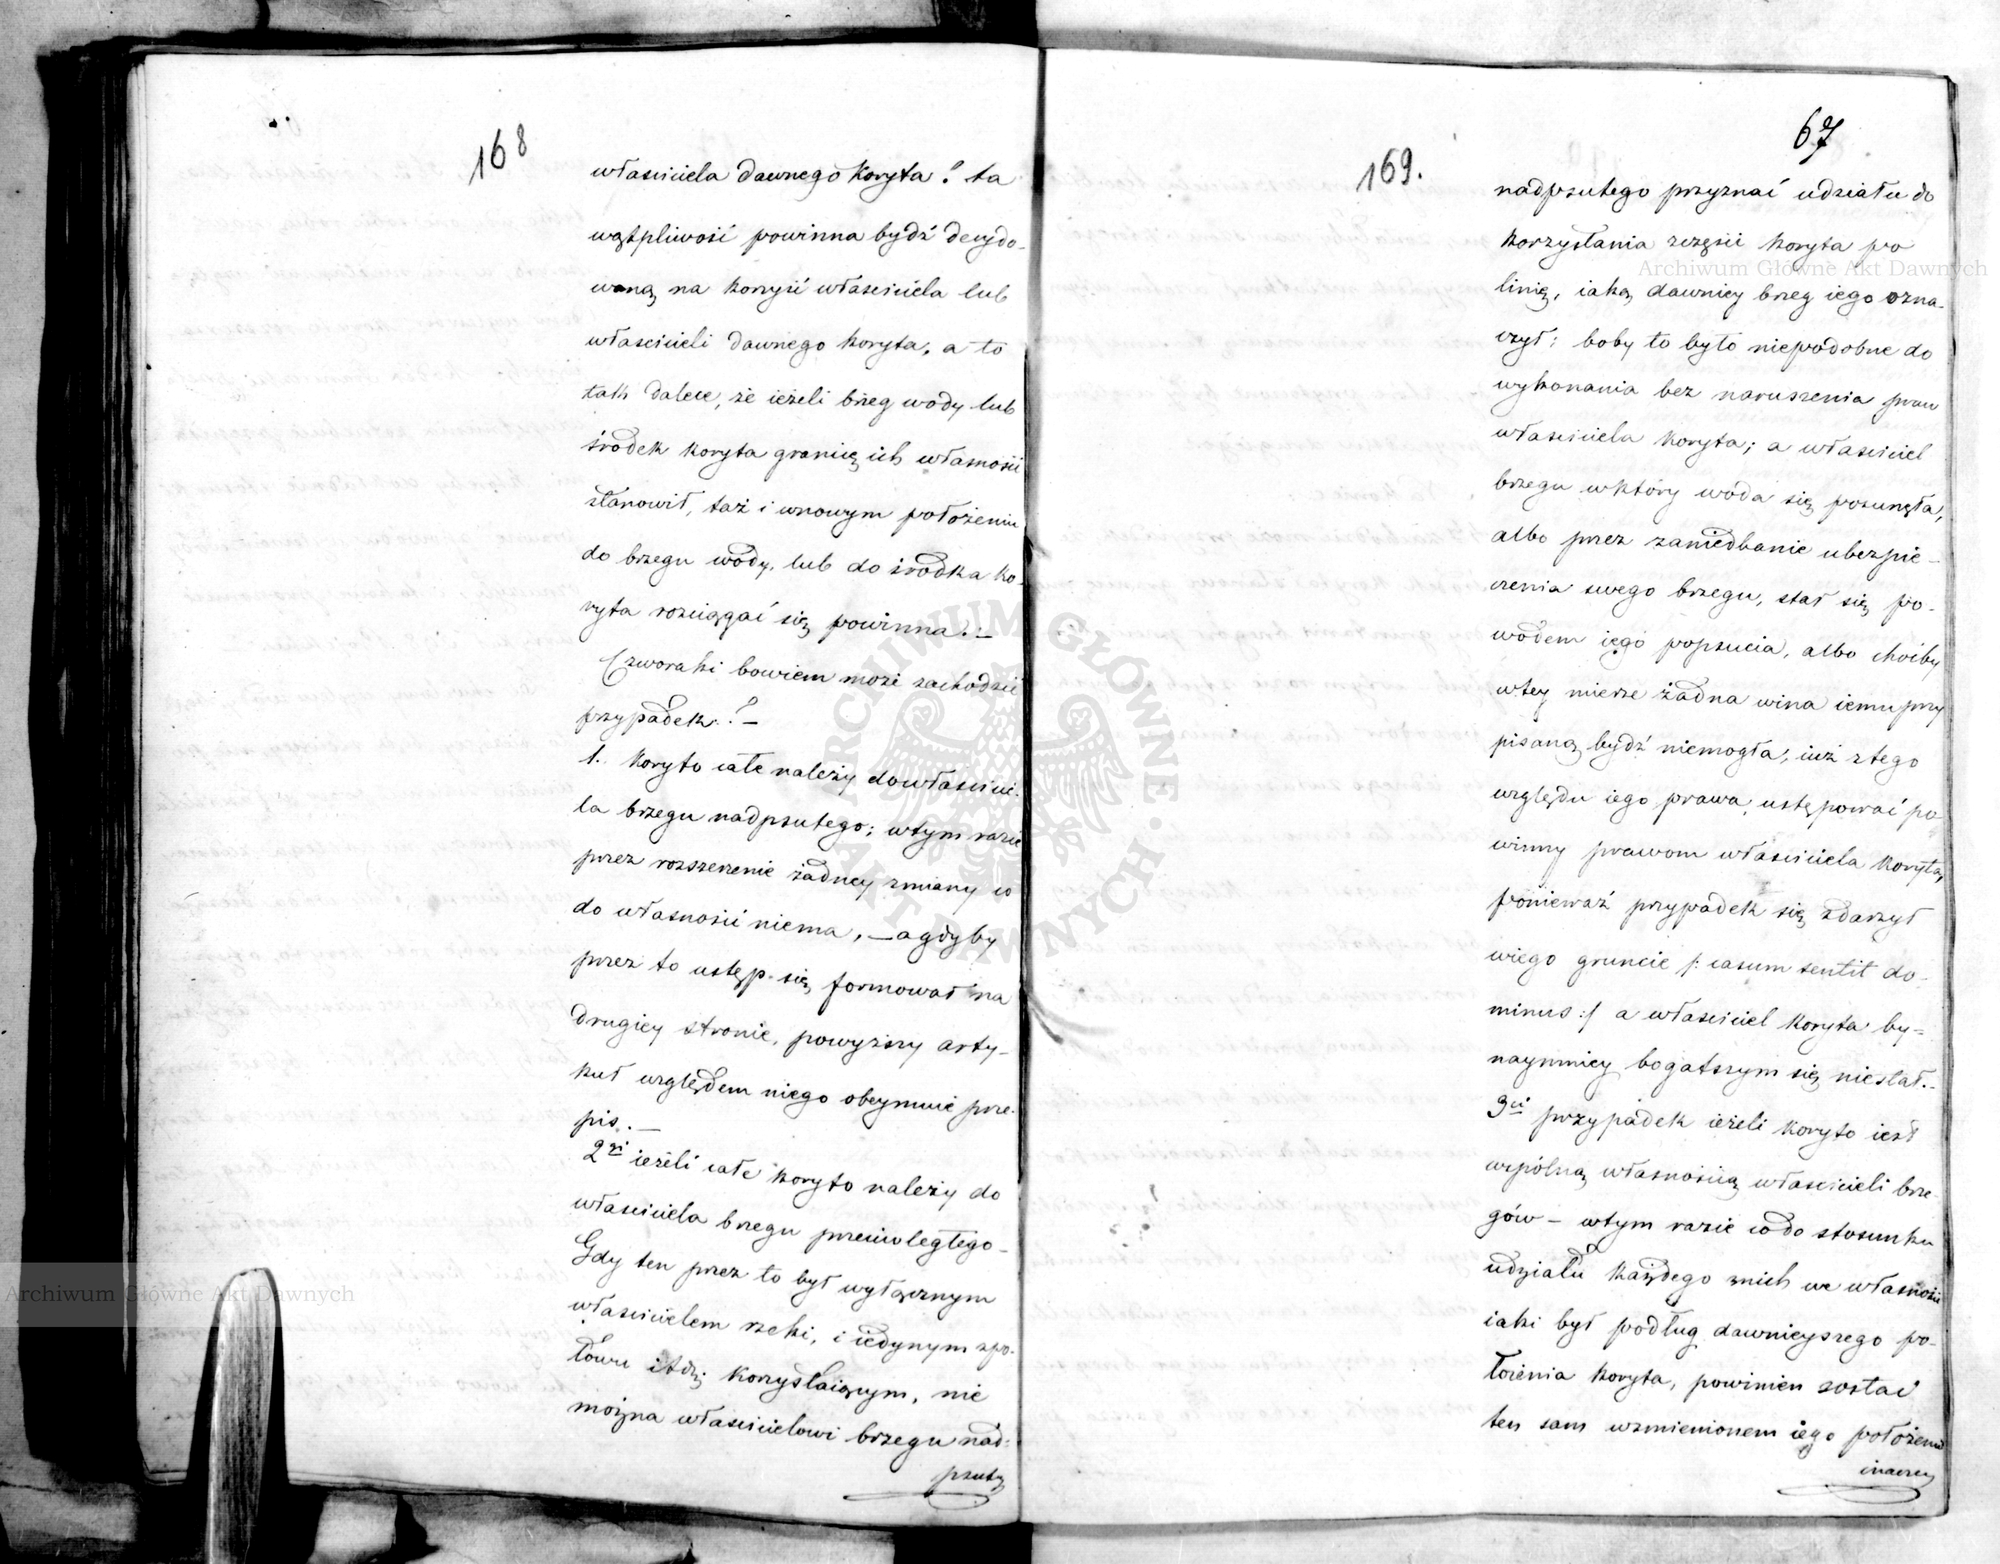 168
właściciela dawnego koryta? ta
wątpliwość powinna bydź decydo-
waną na korzyść właściciela lub
właścicieli dawnego koryta, a to
tak dalece, że ieżeli brzeg wody lub
środek koryta granicę ich własności
stanowił, taż i wnowym położeniu
do brzegu wody, lub do środka ko-
ryta rozciągać się powinna.—
Czworaki bowiem może zachodzić
przypadek?—
1. koryto całe należy dowłaścicie-
la brzegu nadpsutego; wtym razie
przez rozszerzenie żadney zmiany co
do własności niema,—agdyby
przez to ustęp się formował na
drugiey stronie, powyższy arty-
kuł względem niego obeymuie prze-
pis.—
2gi ieżeli całe koryto należy do
właściciela brzegu przeciwległego-
Gdy ten przez to był wyłącznym
właścicielem rzeki, i iedynym zpo-
łowu itd. korzystaiącym, nie
można właścicielowi brzegu nad-
psute
67
169.
nadpsutego przyznać udziału do
korzystania zczęści koryta po
linię, iaką dawniey brzeg iego ozna-
czył; boby to było niepodobne do
wykonania bez naruszenia praw
właściciela koryta; a właściciel
brzegu wktóry woda się posunęła,
albo przez zaniedbanie ubezpie-
czenia swego brzegu, stał się po-
wodem iego popsucia, albo choćby
wtey mierze żadna wina iemu przy
pisaną bydź niemogła, iuż ztego
względu iego prawa ustępować po
winny prawom właściciela koryta,
ponieważ przypadek się zdarzył
wiego gruncie /: casum sentit do-
minus :/ a właściciel koryta by-
naymniey bogatszym się niestał.-
3ci przypadek ieżeli koryto iest
wspólną własnością właścicieli brze-
gów — wtym razie codo stosunku
udziału każdego znich we własności
iaki był podług dawnieyszego po-
łożenia koryta, powinien zostać
ten sam wzmienionem iego położeniu
inaczey
Archiwum Główne Akt Dawnych
Archiwum Główne Akt Dawnych
ARCHIWUM GŁÓWNE AKT DAWNYCH